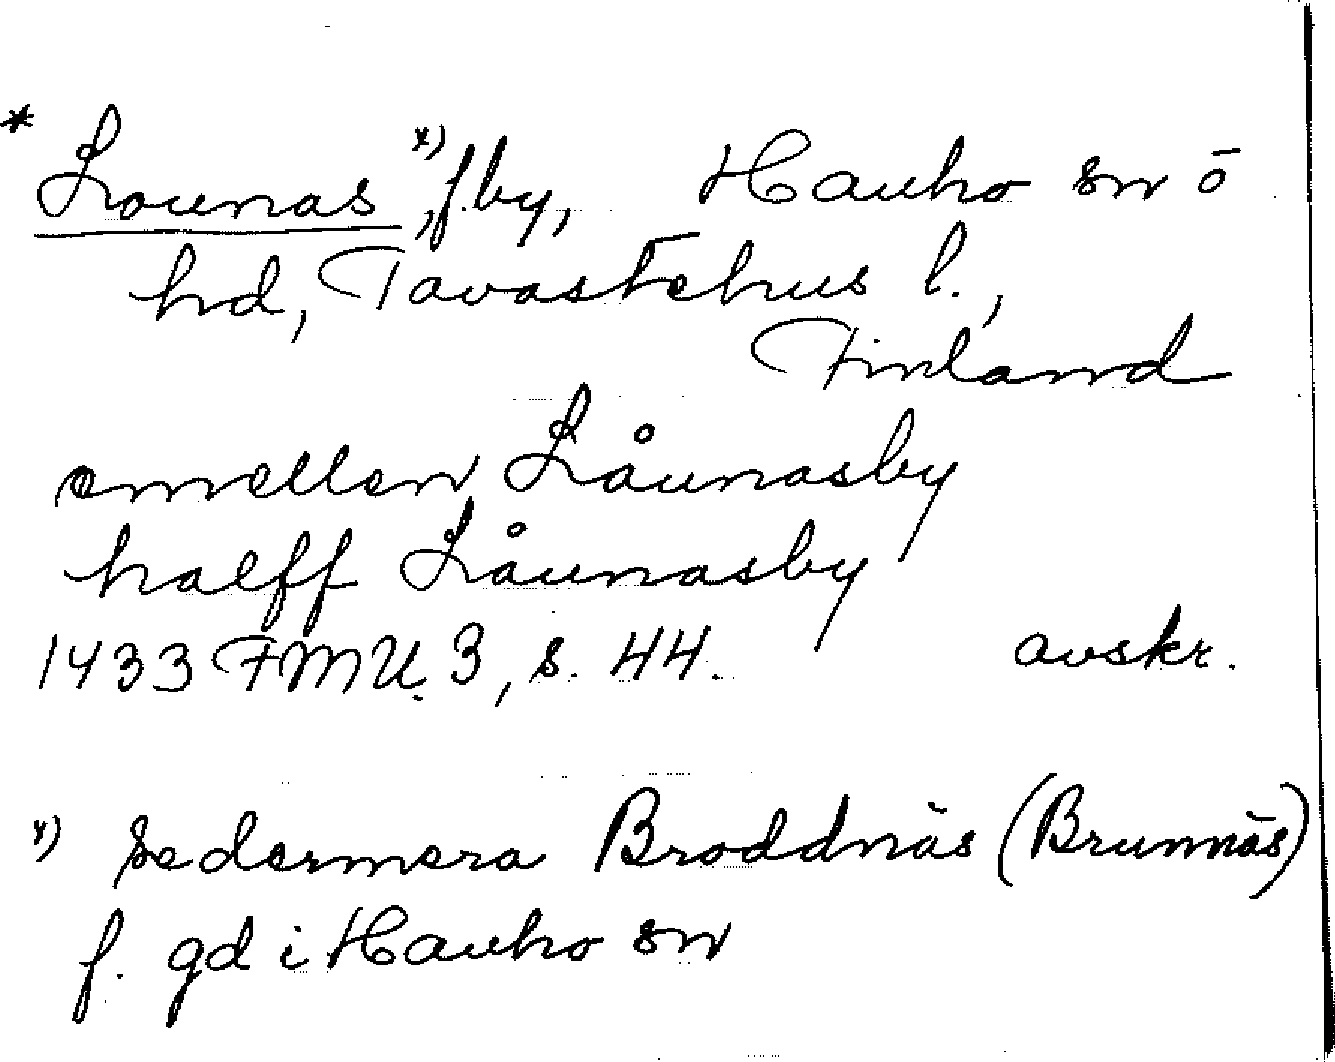 * Lounas x), f. by, Hauho sn ö
hd, Tavastehus l.,
Finland
emellen Låunasby
halff Låunasby
1433 FMU. 3, s. 44. avskr.
x) sedermera Broddnäs (Brunnäs)
f. gd i Hauho sn